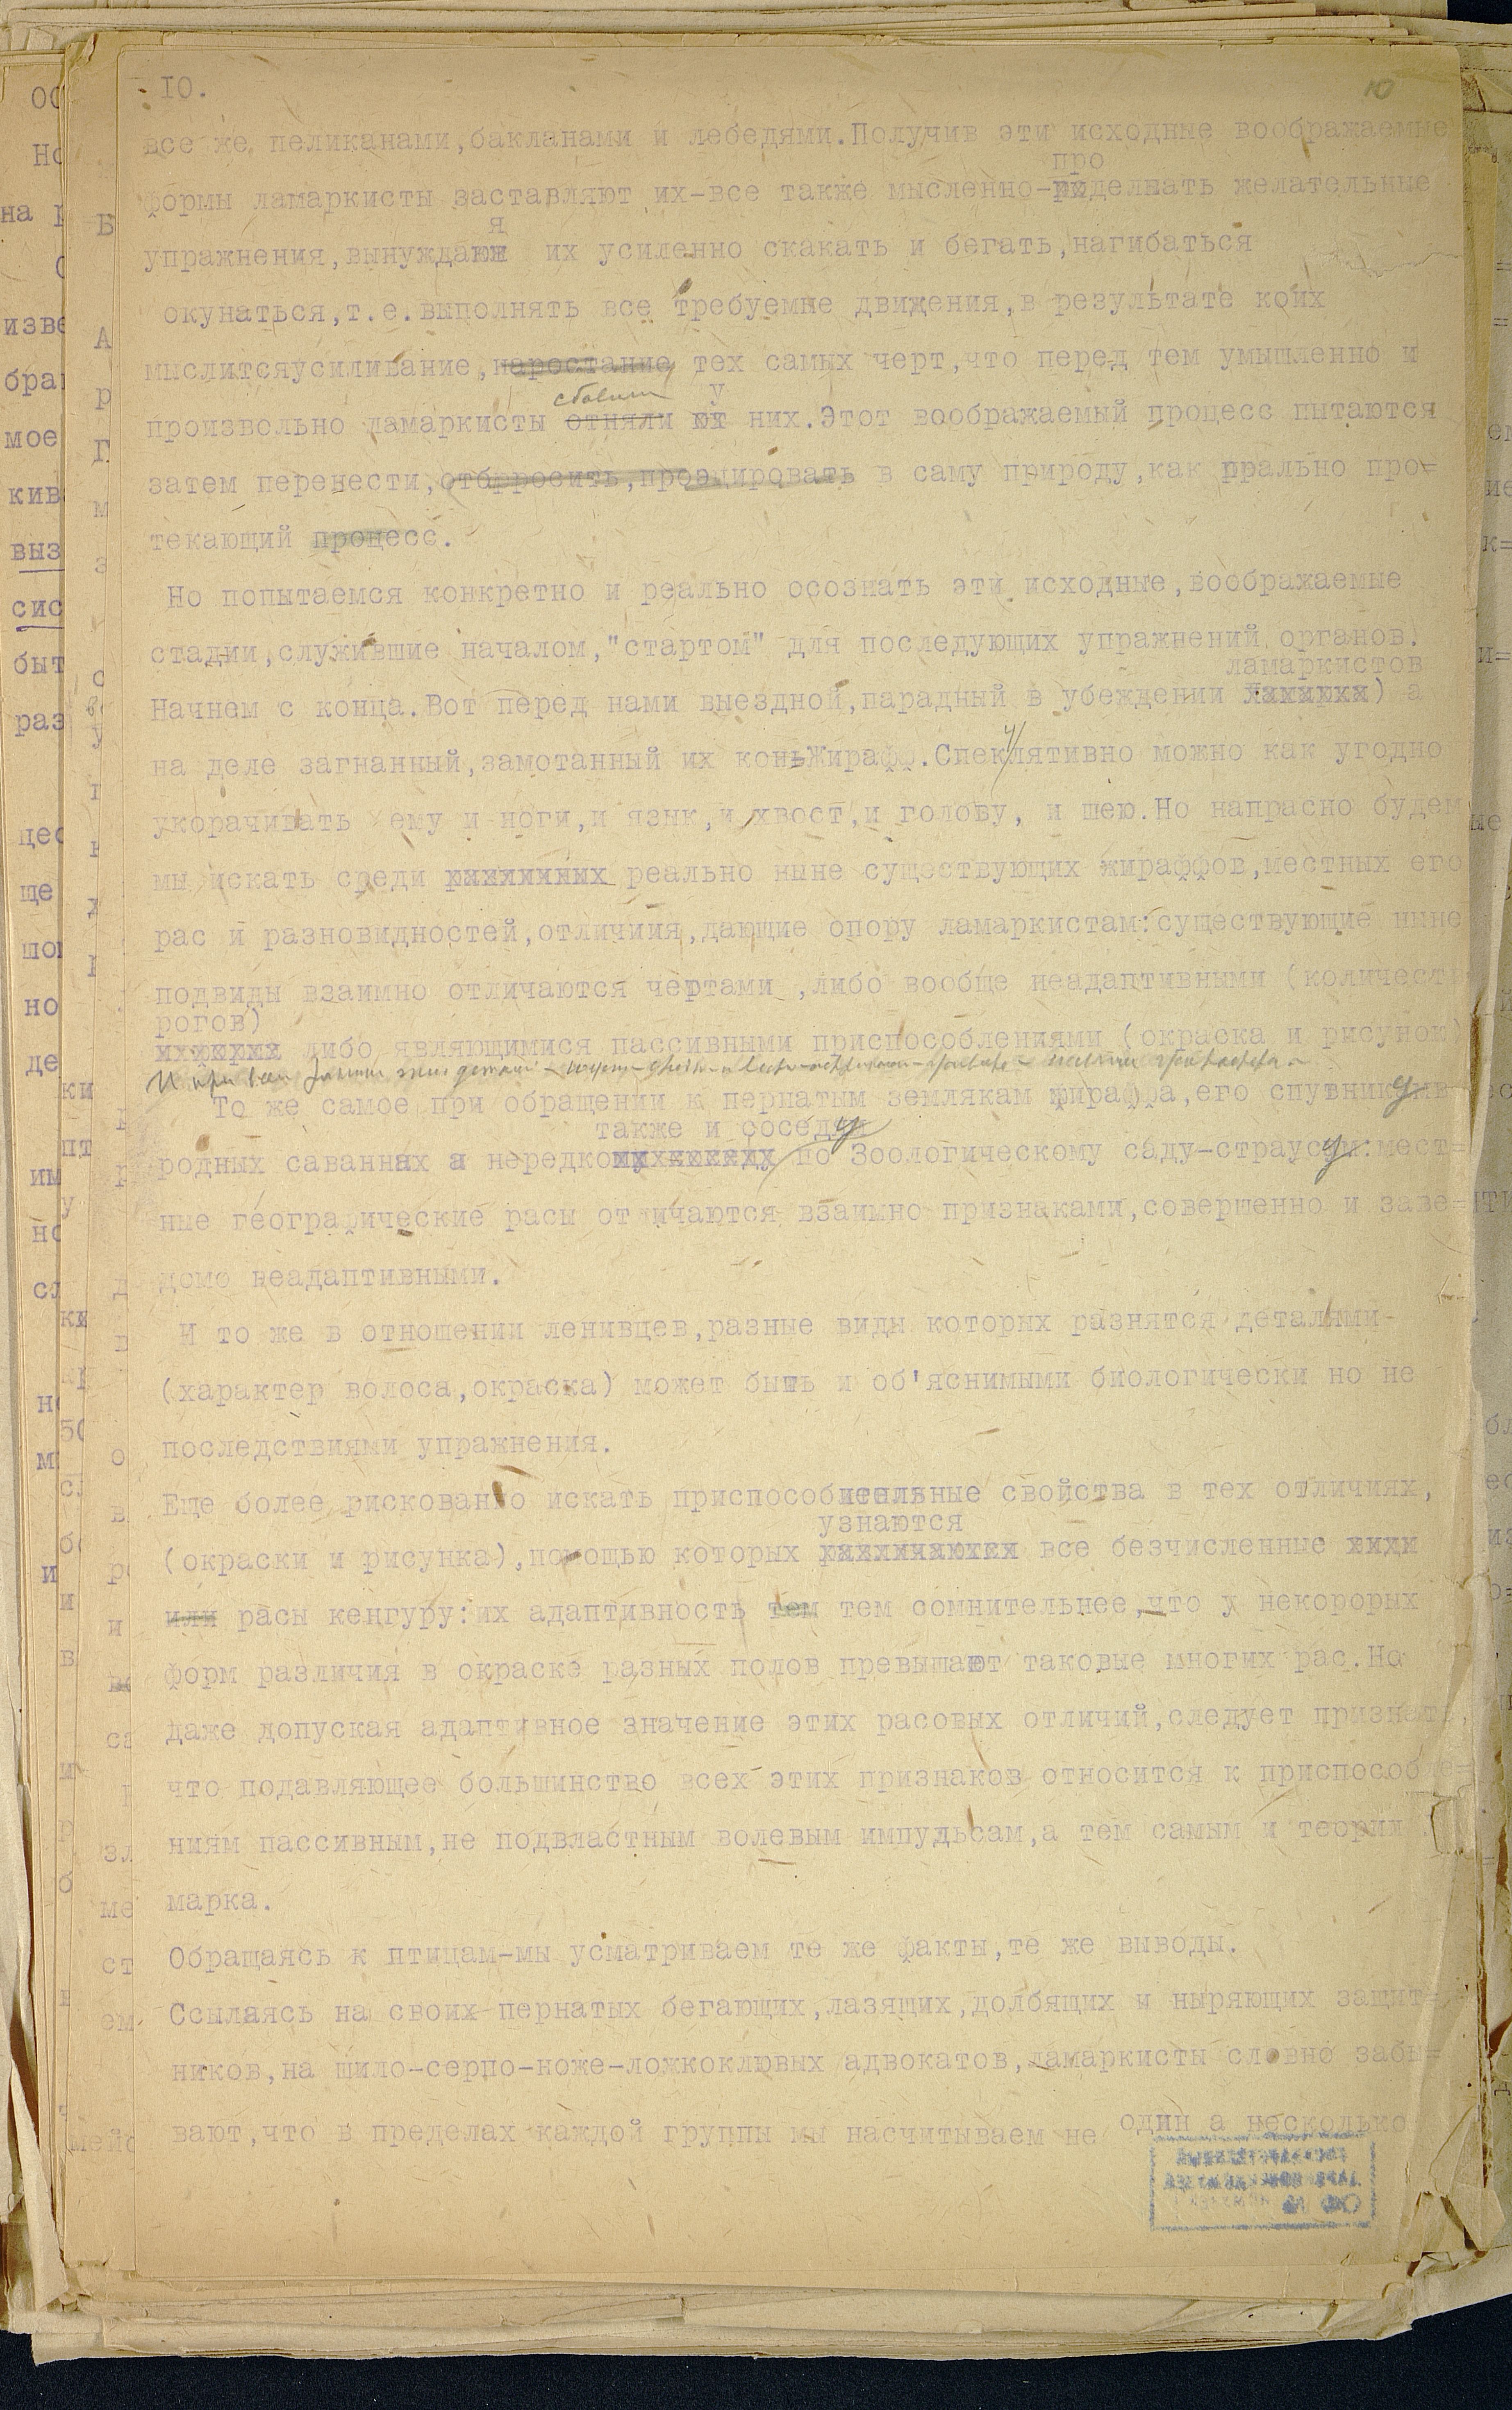 10.
10
все же пеликанами,бакланами и лебедями.Получив эти исходные воображаемые
про
формы ламаркисты заставляют их-все также мысленно-делать желательные
я
упражнения,вынуждаюи их усиленно скакать и бегать,нагибаться
окунаться,т.е.выполнять все требуемые движения,в результате коих
мыслитсяусиливание,наростание тех самых черт,что перед тем умышленно и
у
произвольно ламаркисты отняли от них.Этот воображаемый процесс пытаются
затем перенести,отбрросить,проэцировать в саму природу,как ррально про=
текающий процесс.
Но попытаемся конкретно и реально осознать эти исходные,воображаемые
стадии,служившие началом,"стартом" для последующих упражнений органов.
ламаркистов
Начнем с конца.Вот перед нами выездной,парадный в убеждении ) а
у
на деле загнанный,замотанный их коньЖирафф.Спеклятивно можно как угодно
укорачивать ему и ноги,и язык,и хвост,и голову, и шею.Но напрасно будем
мы искать среди реально ныне существующих жираффов,местных его
рас и разновидностей,отличиия,дающие опору ламаркистам:существующие ныне
подвиды взаимно отличаются чертами ,либо вообще неадаптивными (количест
рогов)
либо являющимися пассивными приспособлениями (окраска и рисунок)
И при всем
То же самое при обращении к пернатым землякам жираффа,его спутнику в
также и соседу
родных саваннах и нередко по Зоологическому саду-страусу:мест=
ные географические расы отличаются взаимно признаками,совершенно и заве=
домо неадаптивными.
И то же в отношении ленивцев,разные виды которых разнятся деталями-
(характер волоса,окраска) может быть и об'яснимыми биологически но не
последствиями упражнения.
Еще более рискованно искать приспособительные свойства в тех отличиях,
узнаются
(окраски и рисунка),помощью которых все безчисленные виды
или расы кенгуру:их адаптивность тем тем сомнительнее,что у некорорых
форм различия в окраске разных полов превышают таковые многих рас.Но
даже допуская адаптивное значение этих расовых отличий,следует признать,
что подавляющее большинство всех этих признаков относится к приспособле=
ниям пассивным,не подвластным волевым импульсам,а тем самым и теории
марка.
Обращаясь к птицам-мы усматриваем те же факты,те же выводы.
Ссылаясь на своих пернатых бегающих,лазящих,долбящих и ныряющих защит=
ников,на шило-серпо-ноже-ложкоклювых адвокатов,ламаркисты словно забы=
вают,что в пределах каждой группы мы насчитываем не один а несколько